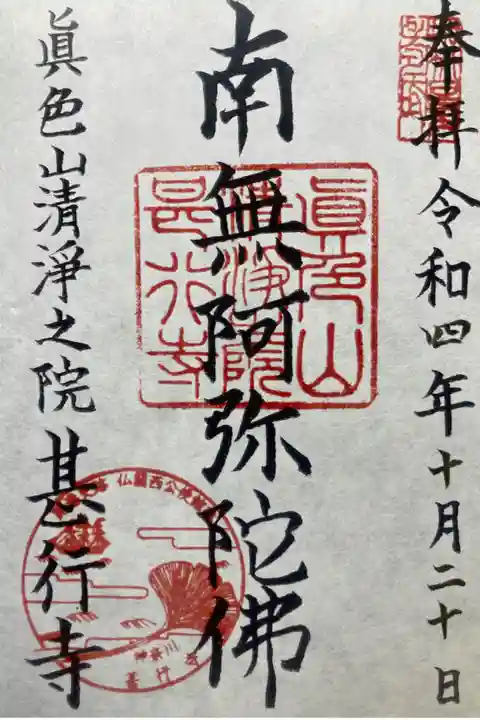 奉拝 令和四年十月二十日
南無阿弥陀佛
眞色山
清浄之院
甚行寺
眞色山清淨之院 甚行寺
仏蘭西公使館
神奈川
甚行寺